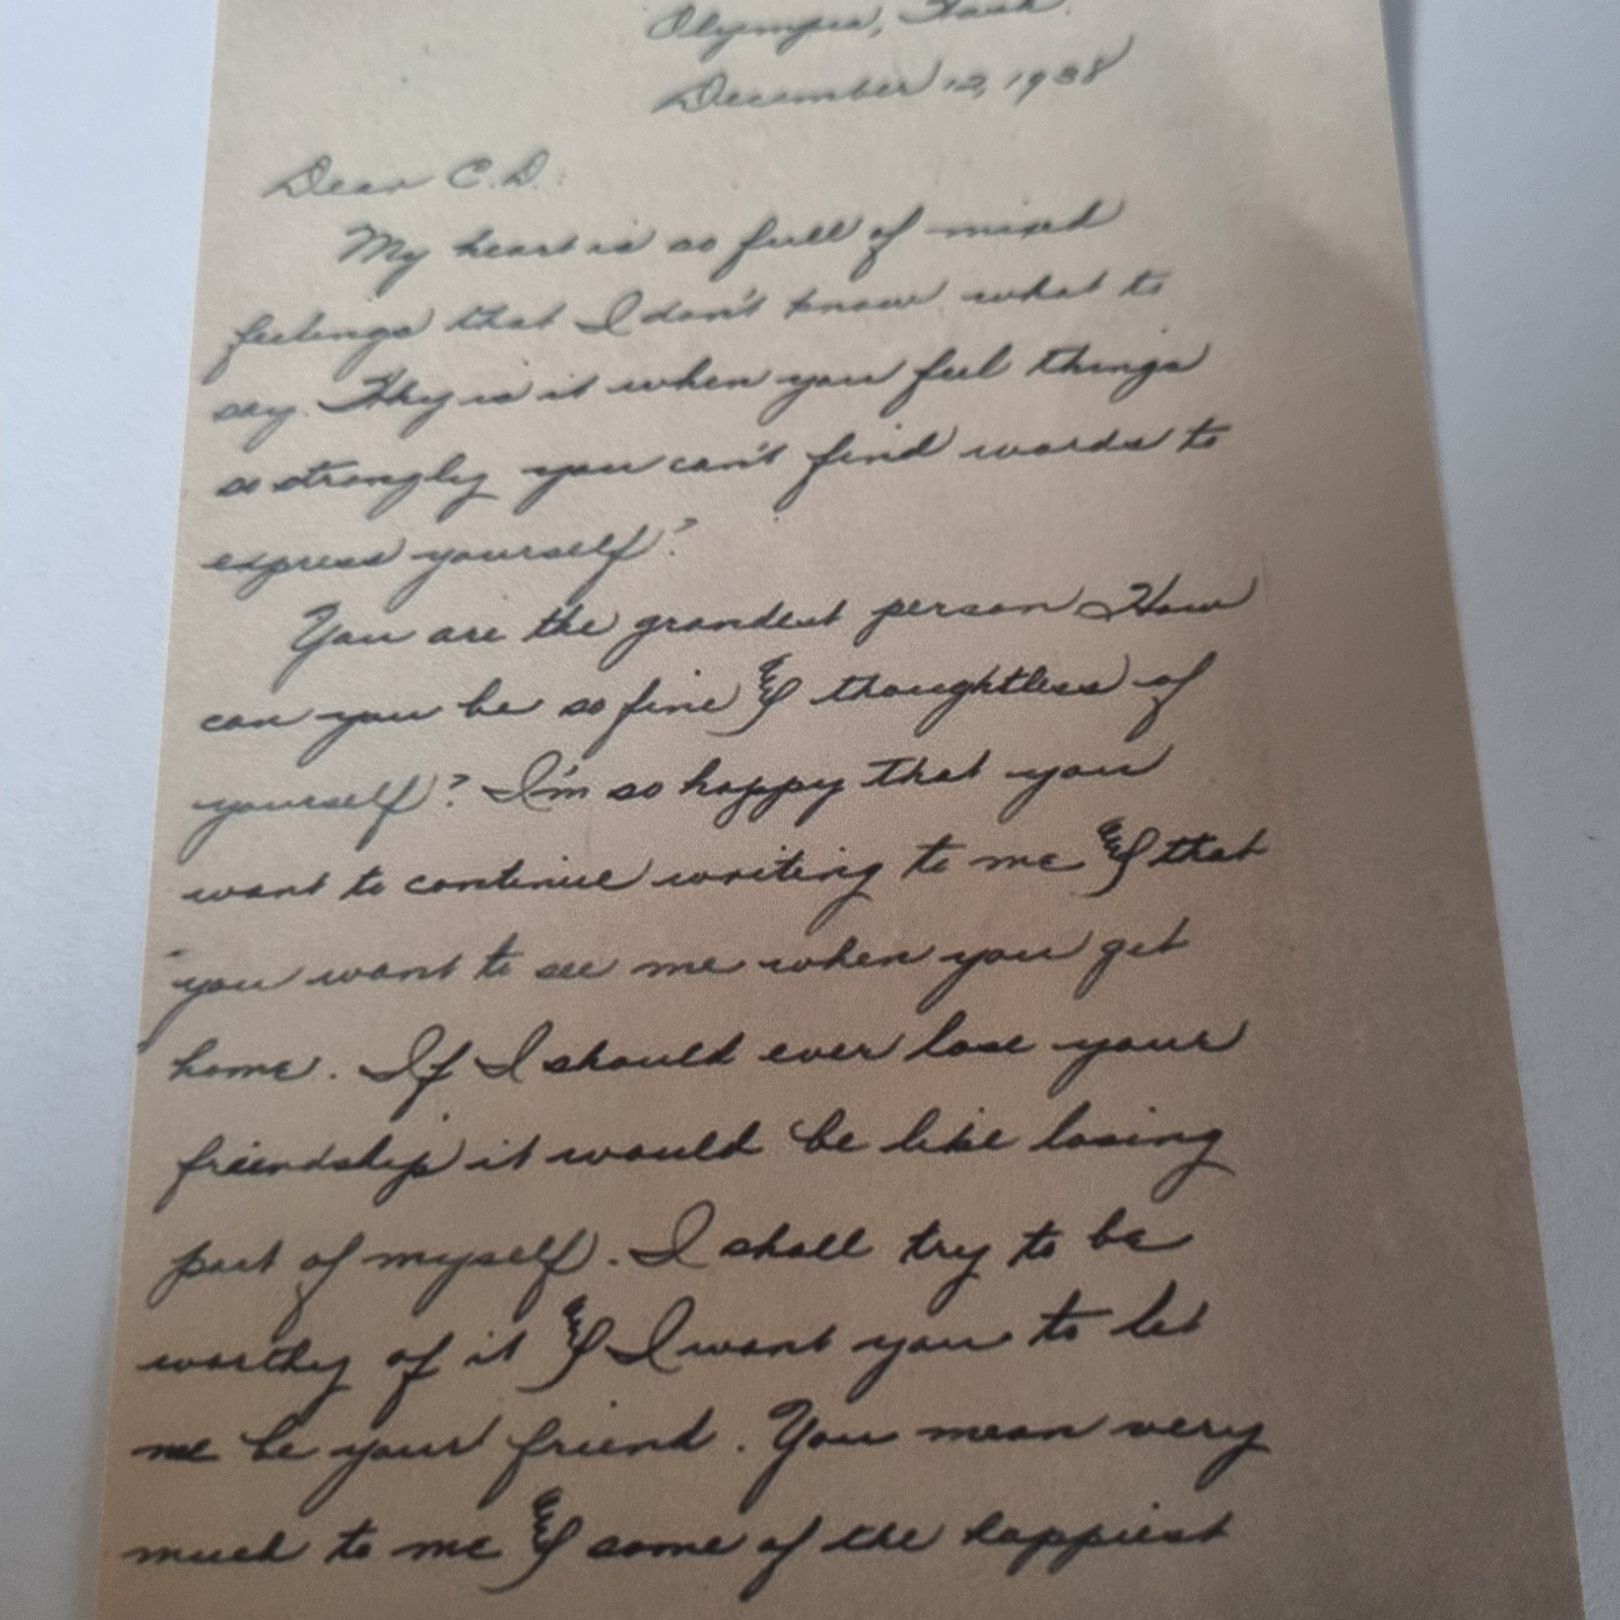 Olympia, Wash.
December 12, 1938
Dear C.D.:
My heart is so full of mixed
feelings that I don't know what to
say. Why is it when you feel things
so strongly you can't find words to
express yourself?
You are the grandest person How
can you be so fine & thoughtless of
yourself? I'm so happy that you
want to continue writing to me & that
you want to see me when you get
home. If I should ever lose your
friendship it would be like losing
part of myself. I shall try to be
worthy of it & I want you to let
me be your friend. You mean very
much to me & some of the happiest